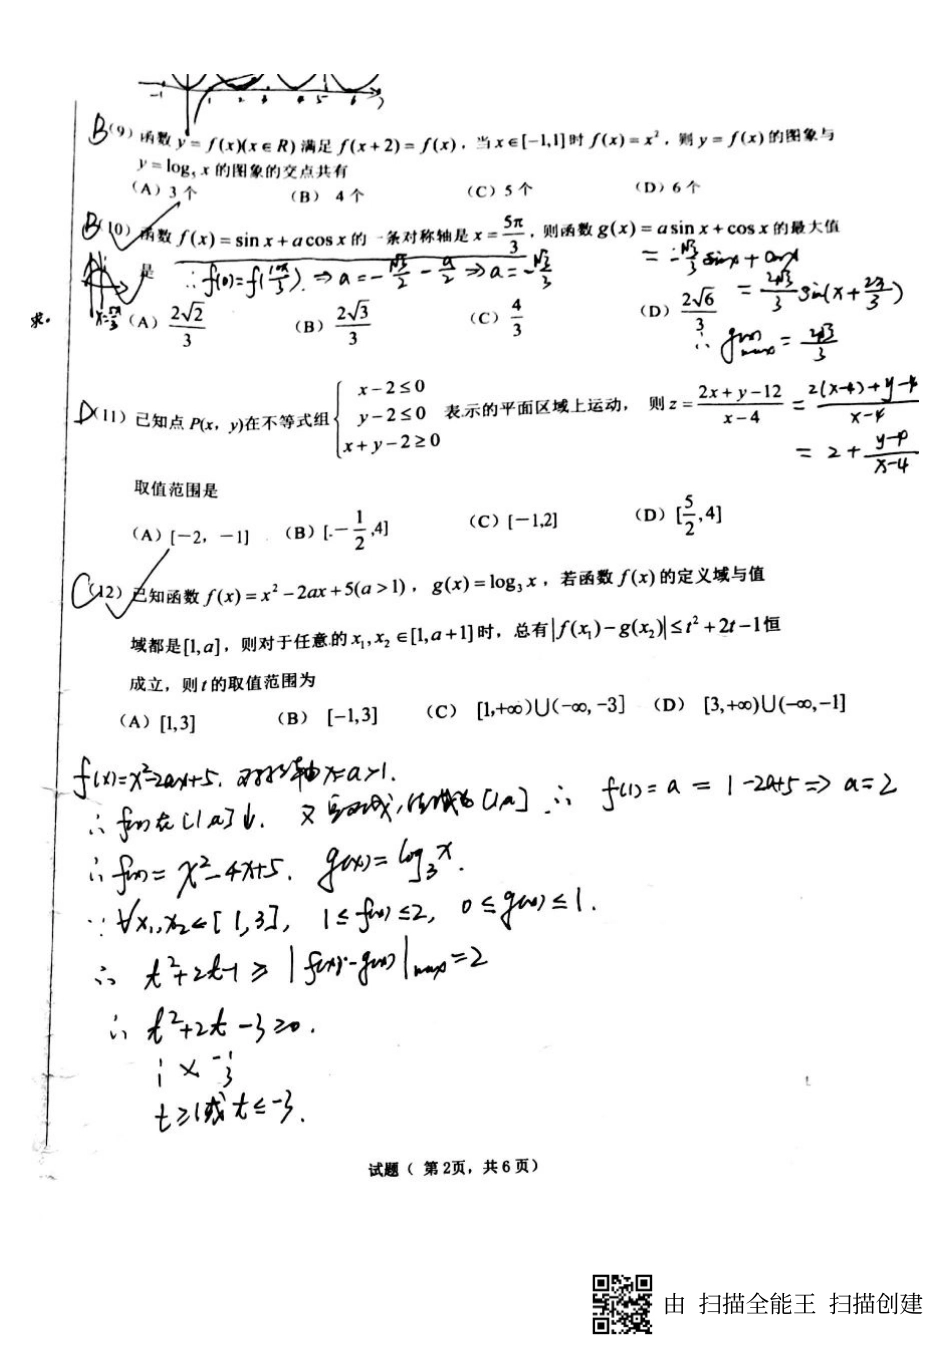 -1 1 2 3 4 5 6
B (9) 函数 y = f(x)(x∈R) 满足 f(x+2) = f(x)，当 x∈[-1,1] 时 f(x) = x²，则 y = f(x) 的图象与
y = log₅ x 的图象的交点共有
(A) 3 个 (B) 4 个 (C) 5 个 (D) 6 个
B (10) 函数 f(x) = sin x + a cos x 的一条对称轴是 x = 5π/3，则函数 g(x) = a sin x + cos x 的最大值
= -√3/3 sinx + cosx
是 ∴ f(0) = f(10π/3) ⇒ a = -√3/2 - a/2 ⇒ a = -√3/3
= 2√3/3 sin(x + 2π/3)
求。
(A) 2√2/3 (B) 2√3/3 (C) 4/3 (D) 2√6/3
∴ g(x)max = 2√3/3
D (11) 已知点 P(x，y)在不等式组 { x-2≤0 y-2≤0 x+y-2≥0 表示的平面区域上运动， 则 z = (2x+y-12)/(x-4) = (2(x-4)+y-4)/(x-4)
= 2 + (y-4)/(x-4)
取值范围是
(A) [-2，-1] (B) [-1/2,4] (C) [-1,2] (D) [5/2,4]
C (12) 已知函数 f(x) = x² - 2ax + 5(a > 1)，g(x) = log₃ x，若函数 f(x) 的定义域与值
域都是[1,a]，则对于任意的 x₁, x₂ ∈[1,a+1] 时，总有 |f(x₁) - g(x₂)| ≤ t² + 2t - 1 恒
成立，则 t 的取值范围为
(A) [1,3] (B) [-1,3] (C) [1,+∞)∪(-∞,-3] (D) [3,+∞)∪(-∞,-1]
f(x)=x²-2ax+5. 对称轴 x=a>1.
∴ f(x)在[1,a]↓. 又定义域,值域为[1,a] ∴ f(1) = a = 1-2a+5 ⇒ a=2
∴ f(x) = x²-4x+5. g(x) = log₃x.
∵ ∀x₁,x₂∈[1,3], 1≤f(x)≤2, 0≤g(x)≤1.
∴ t²+2t-1 ≥ |f(x)-g(x)|max=2
∴ t²+2t-3≥0.
1 × -1
1 3
t≥1或t≤-3.
试题（ 第2页，共6页）
由 扫描全能王 扫描创建